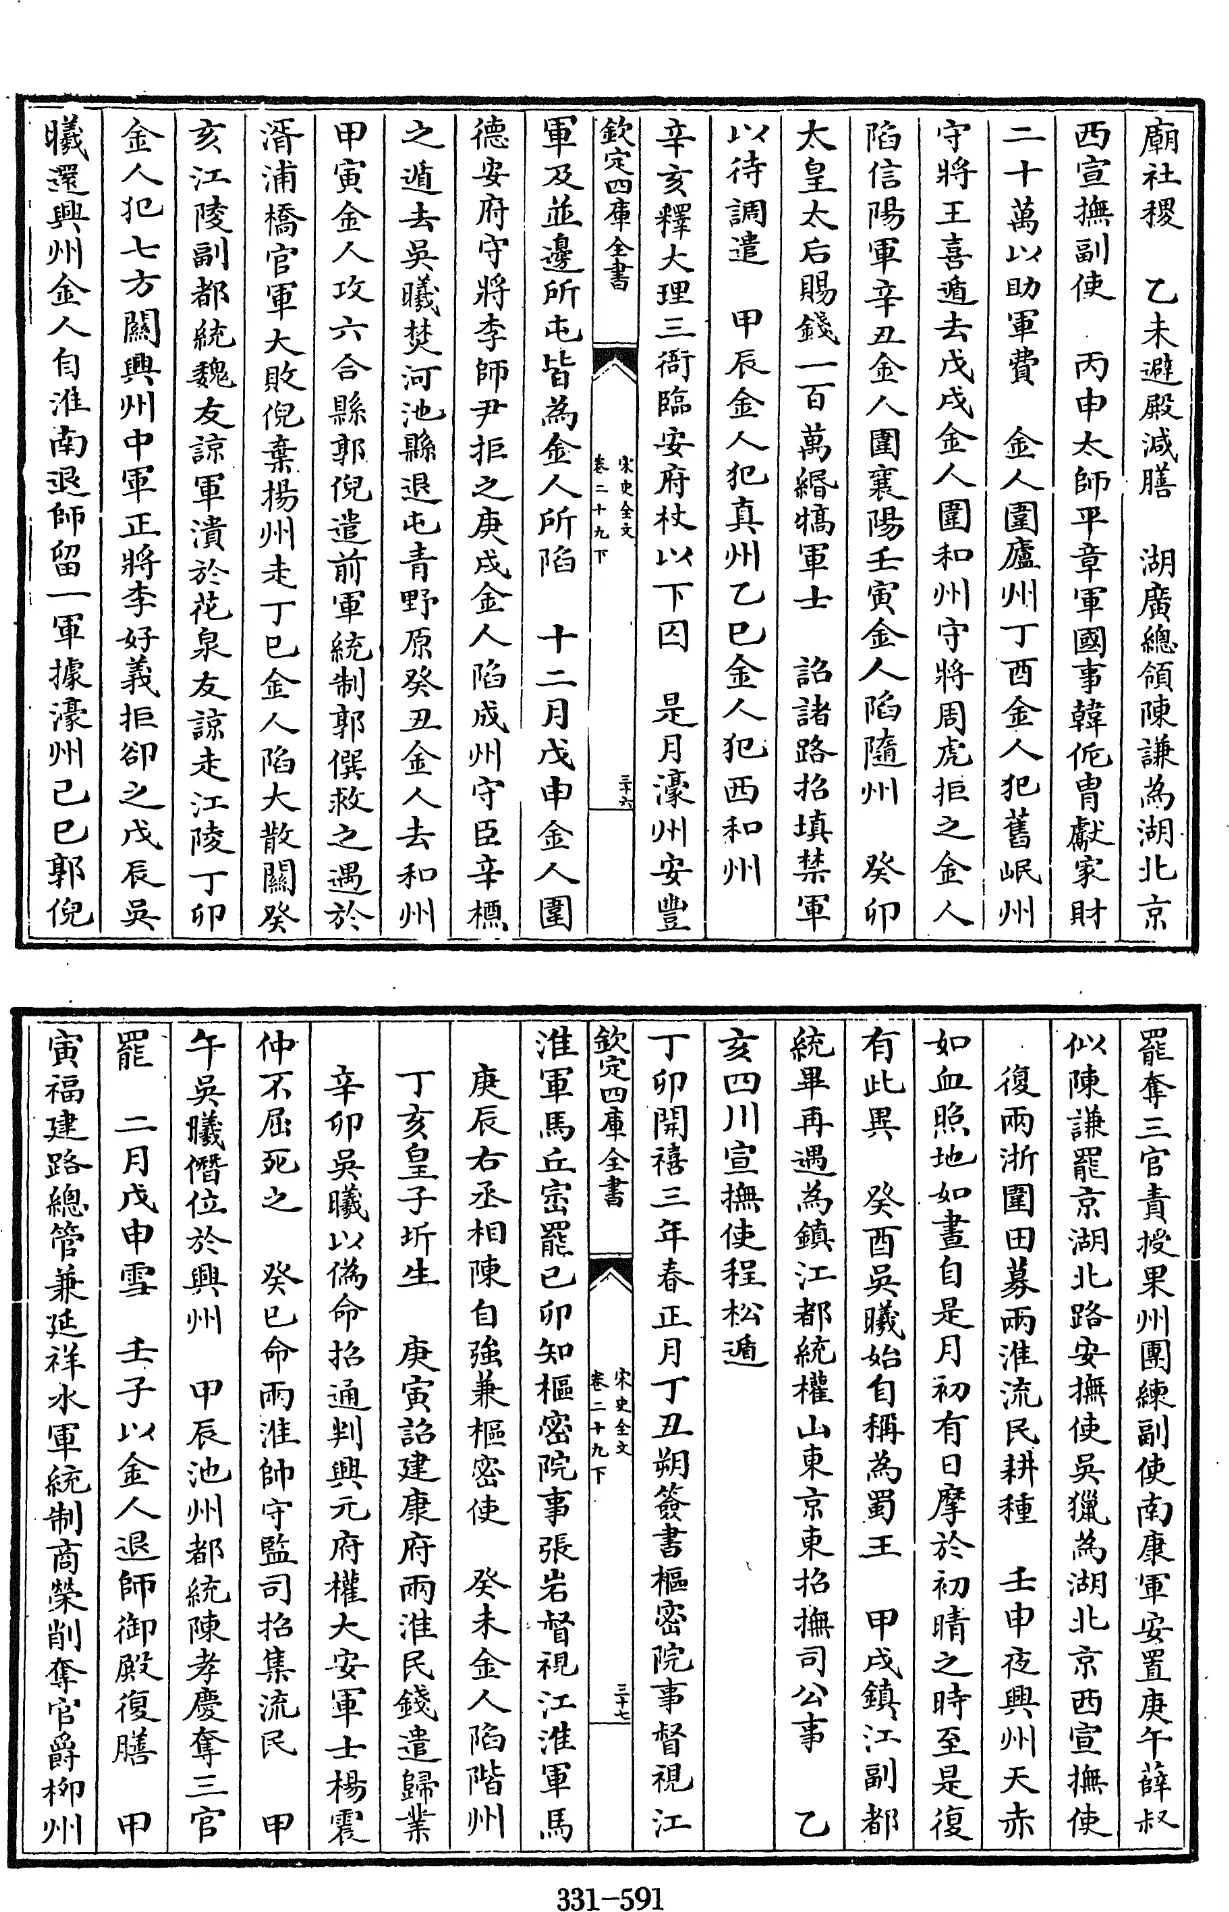 廟社稷　乙未避殿減膳　湖廣總領陳謙為湖北京
西宣撫副使　丙申太師平章軍國事韓侂胄獻家財
二十萬以助軍費　金人圍廬州丁酉金人犯舊岷州
守將王喜遁去戊戌金人圍和州守將周虎拒之金人
陷信陽軍辛丑金人圍襄陽壬寅金人陷隨州　癸卯
太皇太后賜錢一百萬緡犒軍士　詔諸路招填禁軍
以待調遣　甲辰金人犯真州乙巳金人犯西和州
辛亥釋大理三衙臨安府杖以下囚　是月濠州安豐
欽定四庫全書
宋史全文
卷二十九下
三十六
軍及並邊所屯皆為金人所陷　十二月戊申金人圍
德安府守將李師尹拒之庚戌金人陷成州守臣辛槱
之遁去吳曦焚河池縣退屯青野原癸丑金人去和州
甲寅金人攻六合縣郭倪遣前軍統制郭僎救之遇於
胥浦橋官軍大敗倪棄揚州走丁巳金人陷大散關癸
亥江陵副都統魏友諒軍潰於花泉友諒走江陵丁卯
金人犯七方關興州中軍正將李好義拒卻之戊辰吳
曦還興州金人自淮南退師留一軍據濠州己巳郭倪
罷奪三官責授果州團練副使南康軍安置庚午薛叔
似陳謙罷京湖北路安撫使吳獵為湖北京西宣撫使
復兩浙圍田募兩淮流民耕種　壬申夜興州天赤
如血照地如晝自是月初有日摩於初晴之時至是復
有此異　癸酉吳曦始自稱為蜀王　甲戌鎮江副都
統畢再遇為鎮江都統權山東京東招撫司公事　乙
亥四川宣撫使程松遁
丁卯開禧三年春正月丁丑朔簽書樞密院事督視江
欽定四庫全書
宋史全文
卷二十九下
三十七
淮軍馬丘崈罷己卯知樞密院事張岩督視江淮軍馬
庚辰右丞相陳自強兼樞密使　癸未金人陷階州
丁亥皇子圻生　庚寅詔建康府兩淮民錢遣歸業
辛卯吳曦以偽命招通判興元府權大安軍士楊震
仲不屈死之　癸巳命兩淮帥守監司招集流民　甲
午吳曦僭位於興州　甲辰池州都統陳孝慶奪三官
罷　二月戊申雪　壬子以金人退師御殿復膳　甲
寅福建路總管兼延祥水軍統制商榮削奪官爵柳州
331-591